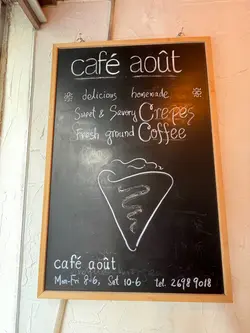 café août
delicious homemade
Sweet & Savory Crepes
Fresh ground Coffee
café août
Mon-Fri 8-6, Sat 10-6 tel. 2698 9018